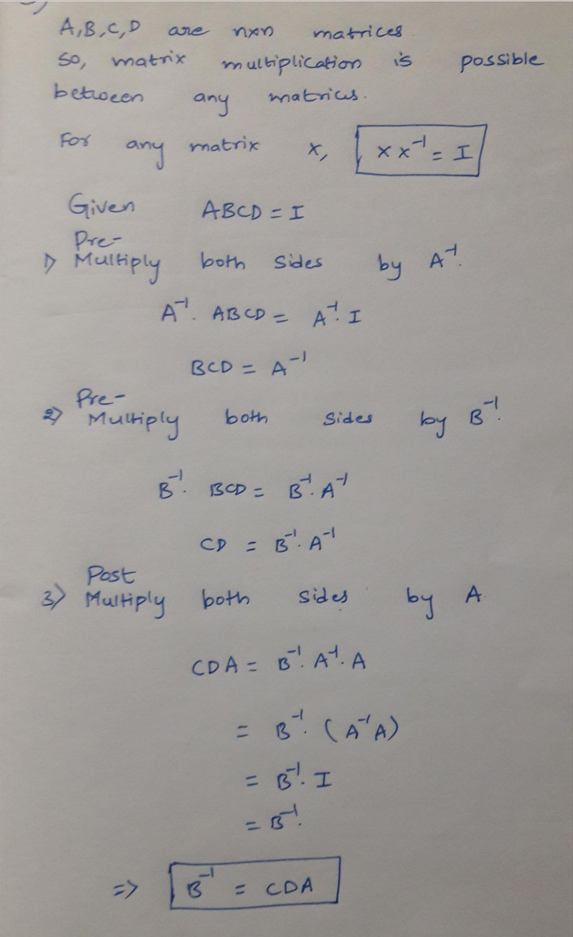 A,B,C,D are nxn matrices
so, matrix multiplication is possible
between any matrices.
For any matrix x, x x⁻¹ = I
Given ABCD = I
Pre-
1) Multiply both sides by A⁻¹.
A⁻¹. ABCD = A⁻¹. I
BCD = A⁻¹
Pre-
2) Multiply both sides by B⁻¹.
B⁻¹. BCD = B⁻¹. A⁻¹
CD = B⁻¹. A⁻¹
Post
3) Multiply both sides by A
CDA = B⁻¹. A⁻¹. A
= B⁻¹. (A⁻¹A)
= B⁻¹. I
= B⁻¹.
=> B⁻¹ = CDA